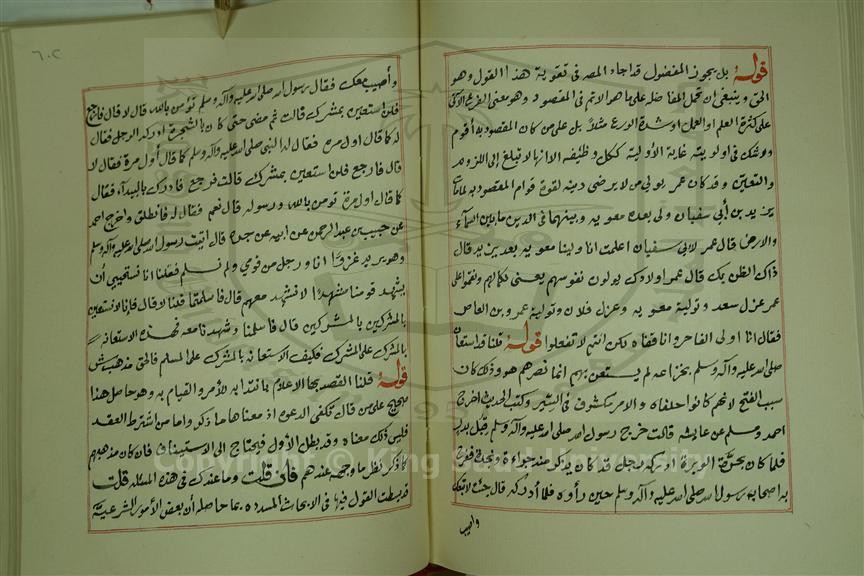 قوله بل يجوز المفضول قد اجاد المصـ في تقوية هذا القول وهو
الحق وينبغي ان تحمل المفاضله على ما هو الاتم في المقصود وهو معنى
على كثرة العلم او العمل او شدة الورع مثلاً بل على من كان المقصود به أقوم
ولا شك في اولويته غاية الأولية ككل وظيفه الا انها لا تبلغ إلى اللزوم
والتعين وقد كان عمر يولي من لا يرضى دينه لقوة قوام المقصود به
يزيد بن أبي سفيان ولى بعده معويه وبينهما في الدين ما بين السماء
والارض قال عمر لابي سفيان اعلمت انا ولينا معويه بعد يزيد قال
ذاك الظن بك قال عمر اولادك يولون نفوسهم يعني ونقموا على
عمر عزل سعد وتولية معويه وعزل فلان وتولية عمرو بن العاص
فقال انا اولي الفاجر وانا قفاه لكن انتم لا تفعلوا قوله قلنا قد استعان
صلى الله عليه وآله وسلم بخزاعه لم يستعن بهم انما نصرهم هو وذلك كان
سبب الفتح لانهم كانوا حلفاه والامر مكشوف في السير وكتب الحديث اخرج
احمد ومسلم عن عايشه قالت خرج رسول الله صلى الله عليه وآله وسلم قبل بدر
فلما كان بحرة الوبرة ادركه رجل قد كان يذكر منه جراءة ونجدة ففرح
به اصحاب رسول الله صلى الله عليه وآله وسلم حين رأوه فلما أدركه قال جئت لاتبعك
واصيب
٦٠٢
وأصيب معك فقال رسول الله صلى الله عليه وآله وسلم تؤمن بالله قال لا قال فارجع
فلن استعين بمشرك قالت ثم مضى حتى كان بالشجرة ادركه الرجل فقال
له كما قال اول مرة فقال له النبي صلى الله عليه وآله وسلم كما قال أول مرة فقال لا
قال فارجع فلن استعين بمشرك قالت فرجع فادركه بالبيداء فقال
كما قال اول مرة تؤمن بالله ورسوله قال نعم فقال له فانطلق واخرج احمد
عن حبيب بن عبد الرحمن عن ابيه عن جده قال اتيت رسول الله صلى الله عليه وآله وسلم
وهو يريد غزوًا انا ورجل من قومي ولم نسلم فقلنا انا نستحيي أن
يشهد قومنا مشهدًا لا نشهده معهم قال فاسلمتما قلنا لا قال فإنا لا نستعين
بالمشركين على المشركين قال فاسلمنا وشهدنا معه فهذه الاستعانه
بالمشرك على المشرك فكيف الاستعانه بالمشرك على المسلم فالحق مذهب
قوله قلنا القصد بها الاعلام بانتدابه للأمر والقيام به وهو حاصل هذا
صحيح على من قال تكفي الدعوه اذ معناها ما ذكر واما من اشترط العقد
فليس ذلك معناه وقد بطل الأول فيحتاج الى الاستيناف فان كان مذهبهم
كما ذكر نظر ما وجهه عندهم فان قلت وما عندك في هذه المسئله قلت
قد بسطت القول فيها في الابحاث المسدده بما حاصله أن بعض الأمور الشرعية
Copyright © King Saud University